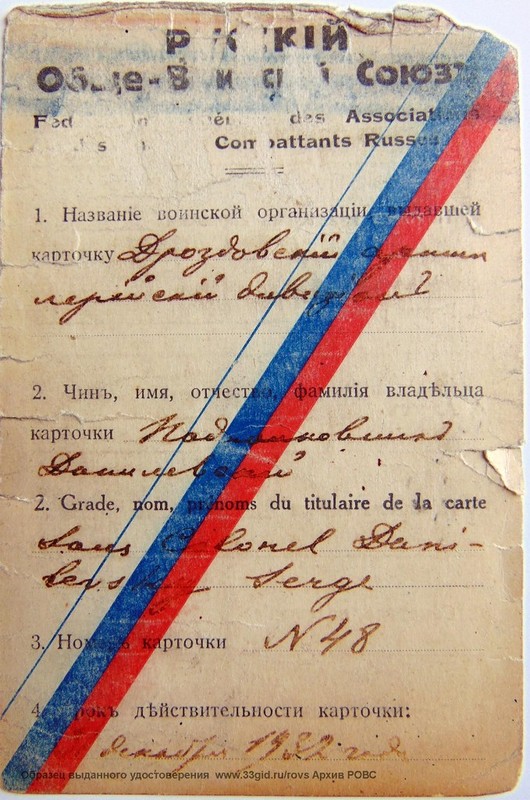 Р   СКІЙ
Обще-В и с   Союзъ
Fed   des Associations
s   Combattants Russes
1. Названіе воинской организаціи, выдавшей
карточку Дроздовскій артил
лерійскій дивизіонъ
2. Чинъ, имя, отчество, фамилія владѣльца
карточки Подполковникъ
Данилевскій
2. Grade, nom, prénoms du titulaire de la carte
Sous Colonel Dani-
levsky Serge
3. Номеръ карточки N 48
4. Срокъ дѣйствительности карточки:
декабря 1932 года
Образец выданного удостоверения www.33gid.ru/rovs Архив РОВС